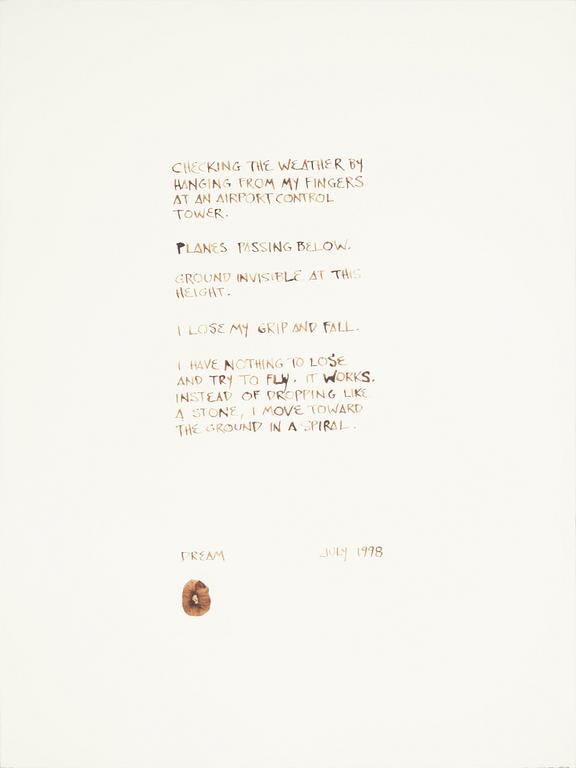 CHECKING THE WEATHER BY
HANGING FROM MY FINGERS
AT AN AIRPORT CONTROL
TOWER.
PLANES PASSING BELOW.
GROUND INVISIBLE AT THIS
HEIGHT.
I LOSE MY GRIP AND FALL.
I HAVE NOTHING TO LOSE
AND TRY TO FLY. IT WORKS.
INSTEAD OF DROPPING LIKE
A STONE, I MOVE TOWARD
THE GROUND IN A SPIRAL.
DREAM JULY 1998